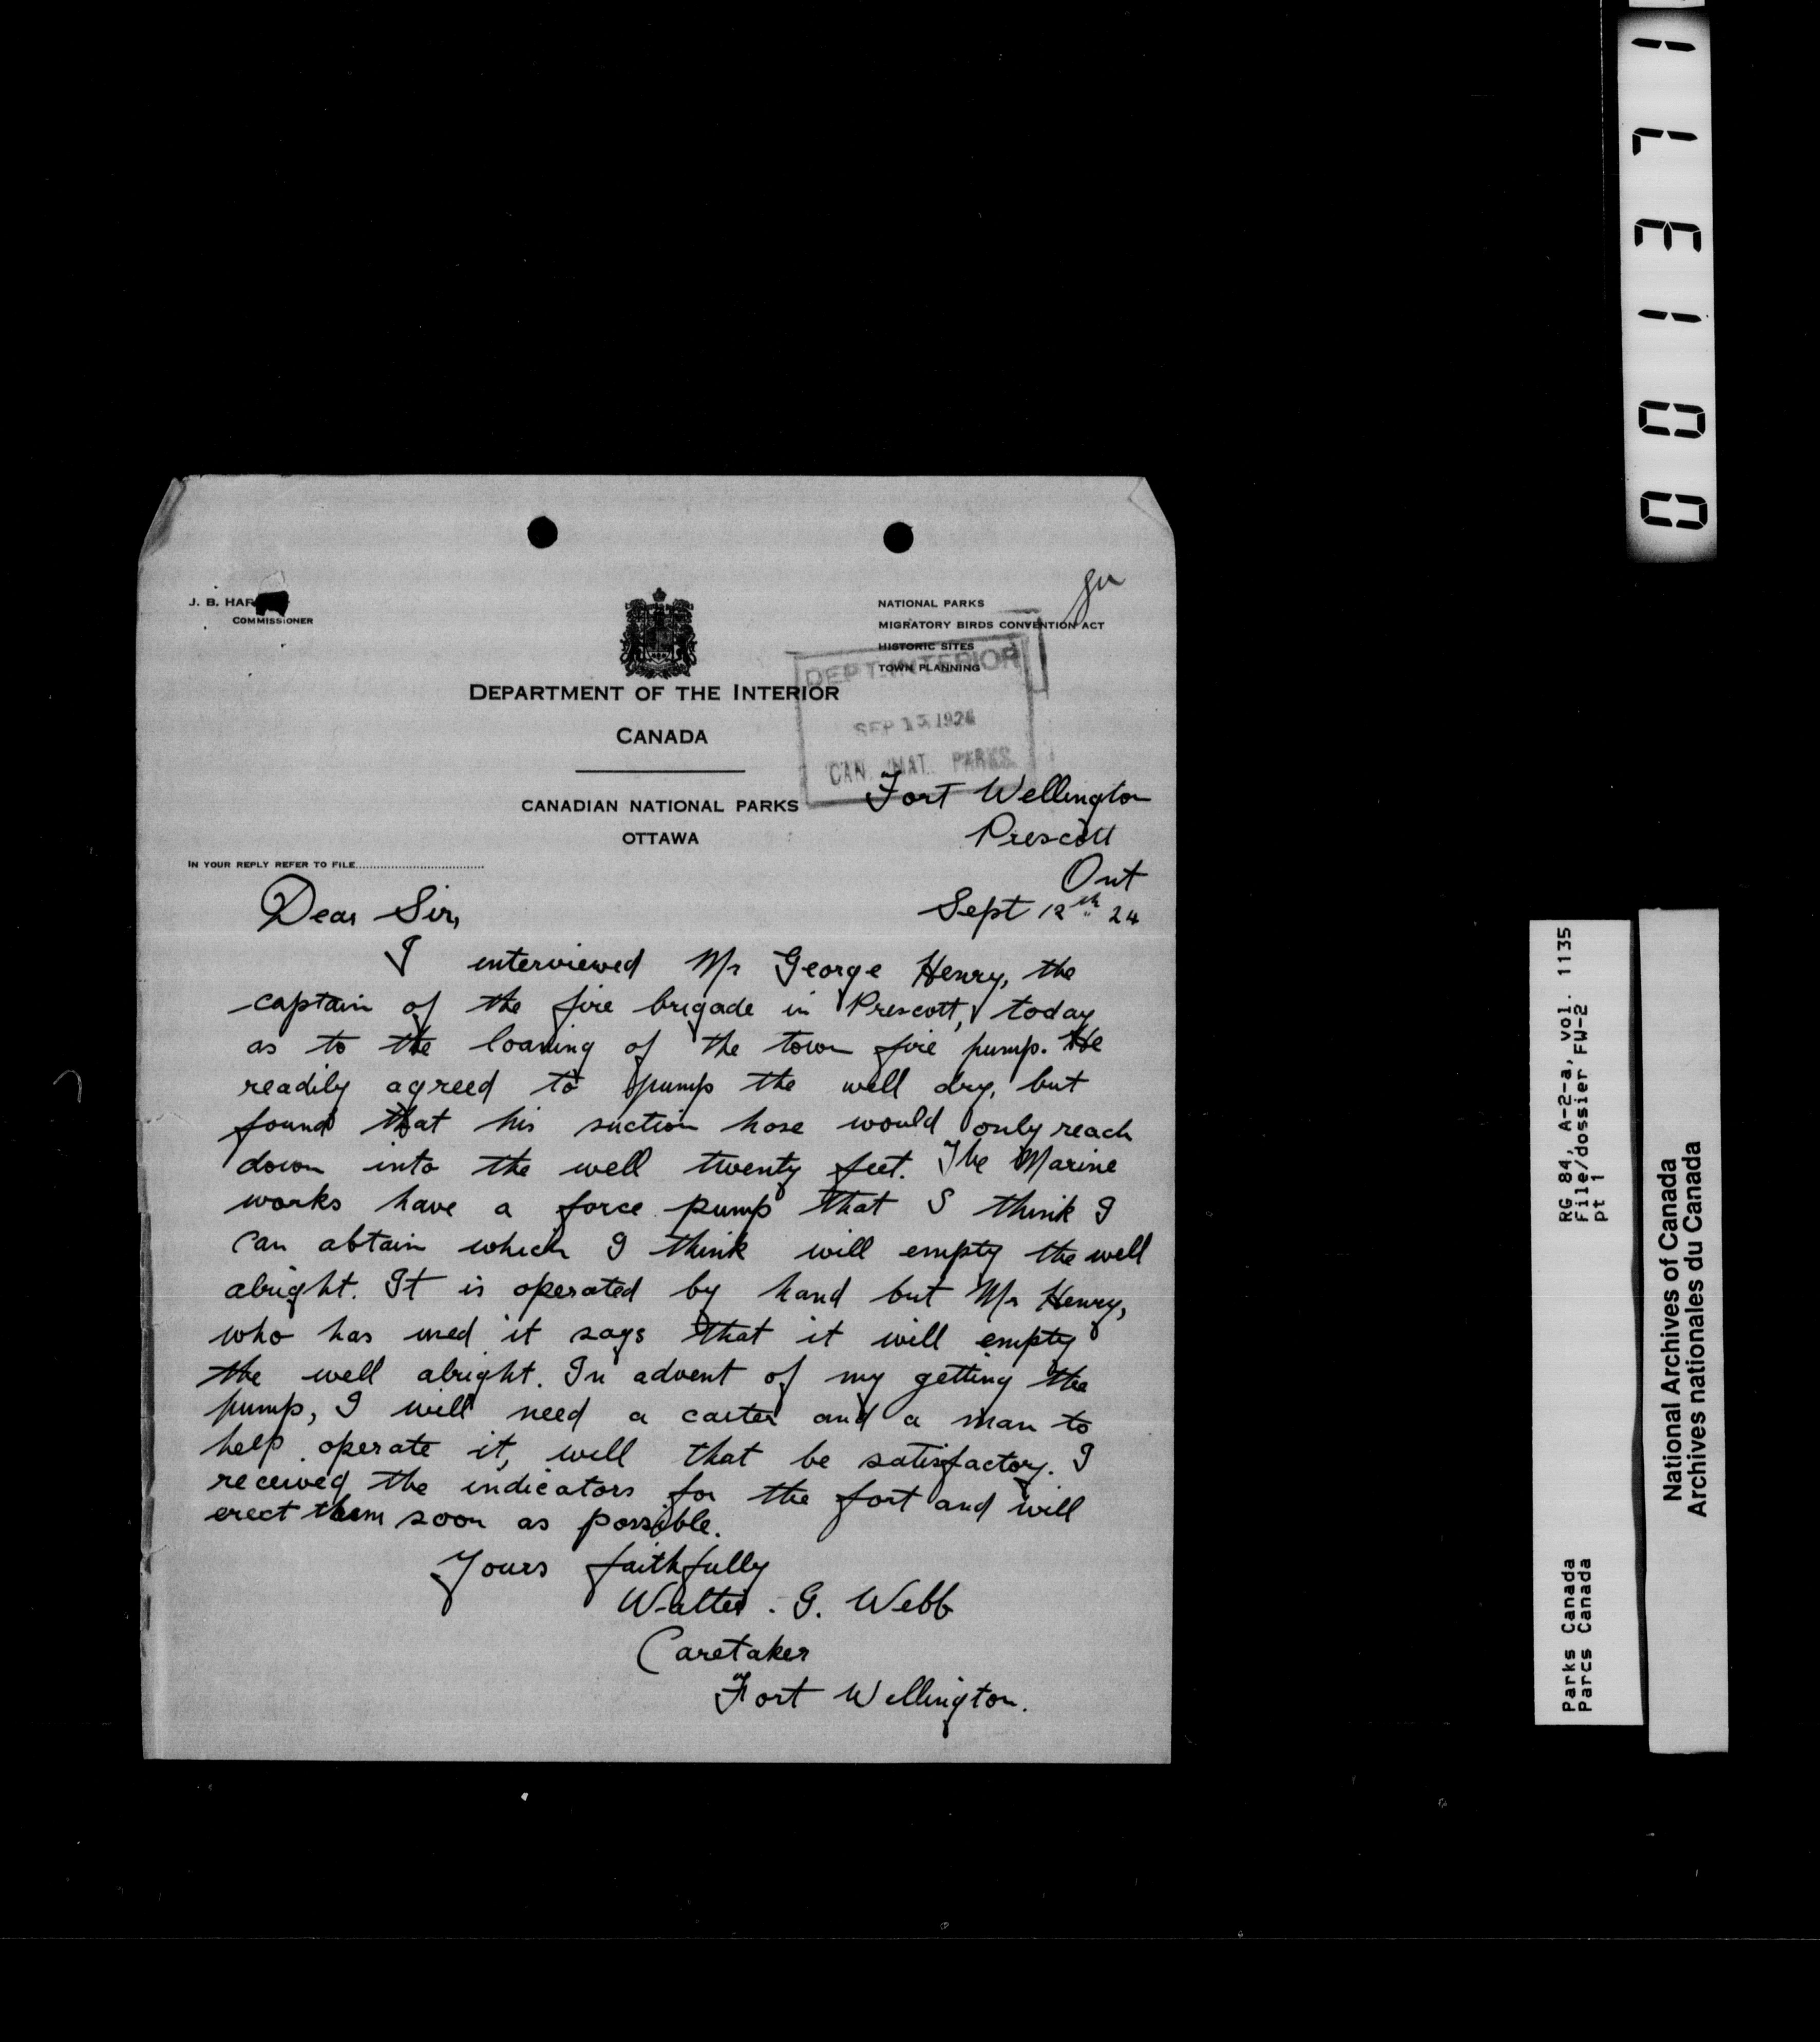 J. B. HAR
COMMISSIONER
NATIONAL PARKS
MIGRATORY BIRDS CONVENTION ACT
HISTORIC SITES
TOWN PLANNING
DEPT. INTERIOR
SEP 13 1924
CAN. NAT. PARKS
DEPARTMENT OF THE INTERIOR
CANADA
CANADIAN NATIONAL PARKS
OTTAWA
IN YOUR REPLY REFER TO FILE
Fort Wellington
Prescott
Ont
Sept 12th 24
Dear Sir,
I interviewed Mr George Henry, the
captain of the fire brigade in Prescott, today
as to the loaning of the town fire pump. He
readily agreed to pump the well dry, but
found that his suction hose would only reach
down into the well twenty feet. The Marine
works have a force pump that I think I
can obtain which I think will empty the well
alright. It is operated by hand but Mr Henry,
who has used it says that it will empty
the well alright. In advent of my getting the
pump, I will need a carter and a man to
help operate it, will that be satisfactory. I
received the indicators for the fort and will
erect them soon as possible.
Yours faithfully
Walter. G. Webb
Caretaker
Fort Wellington.
001371
RG 84, A-2-a, vol. 1135
File/dossier FW-2
pt 1
Parks Canada
Parcs Canada
National Archives of Canada
Archives nationales du Canada